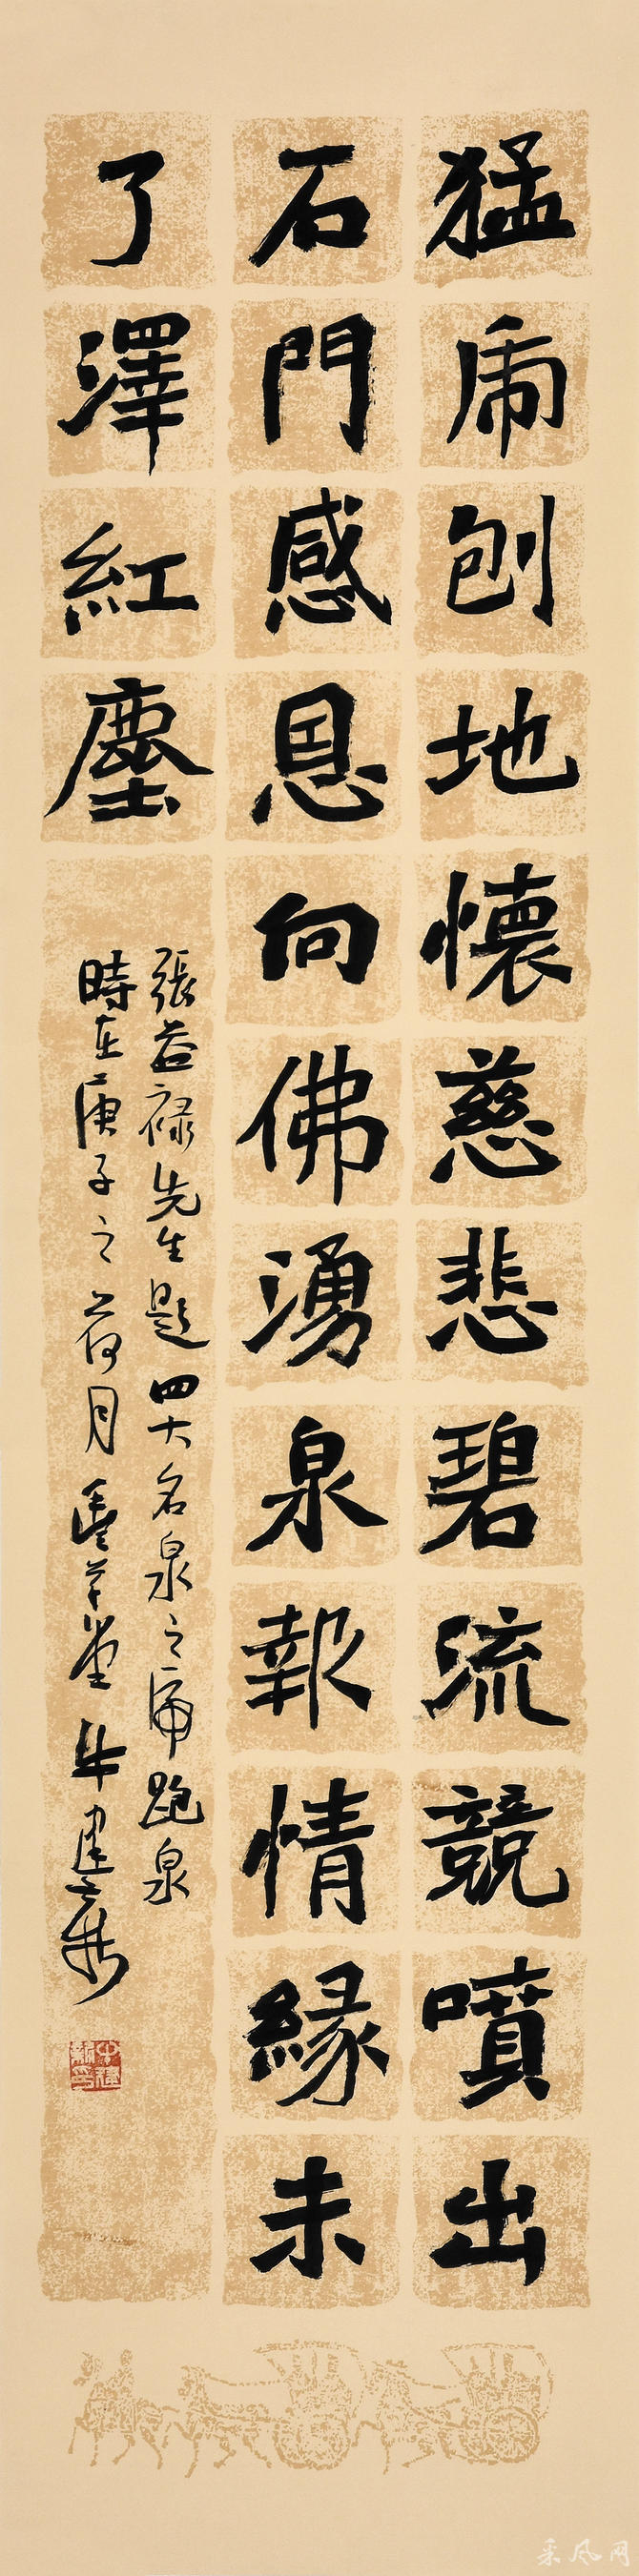 猛虎刨地懷慈悲碧流競噴出
石門感恩向佛湧泉報情緣未
了澤紅塵
張益祿先生題四大名泉之虎跑泉
時在庚子之荷月草堂牛建新
采风网